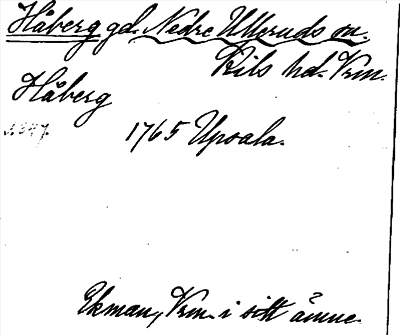 Håberg gd. Nedre Ulleruds sn.
Kils hd. Vrm.
Håberg
1765 Upsala.
Ekman, Vrm. i sitt ämne